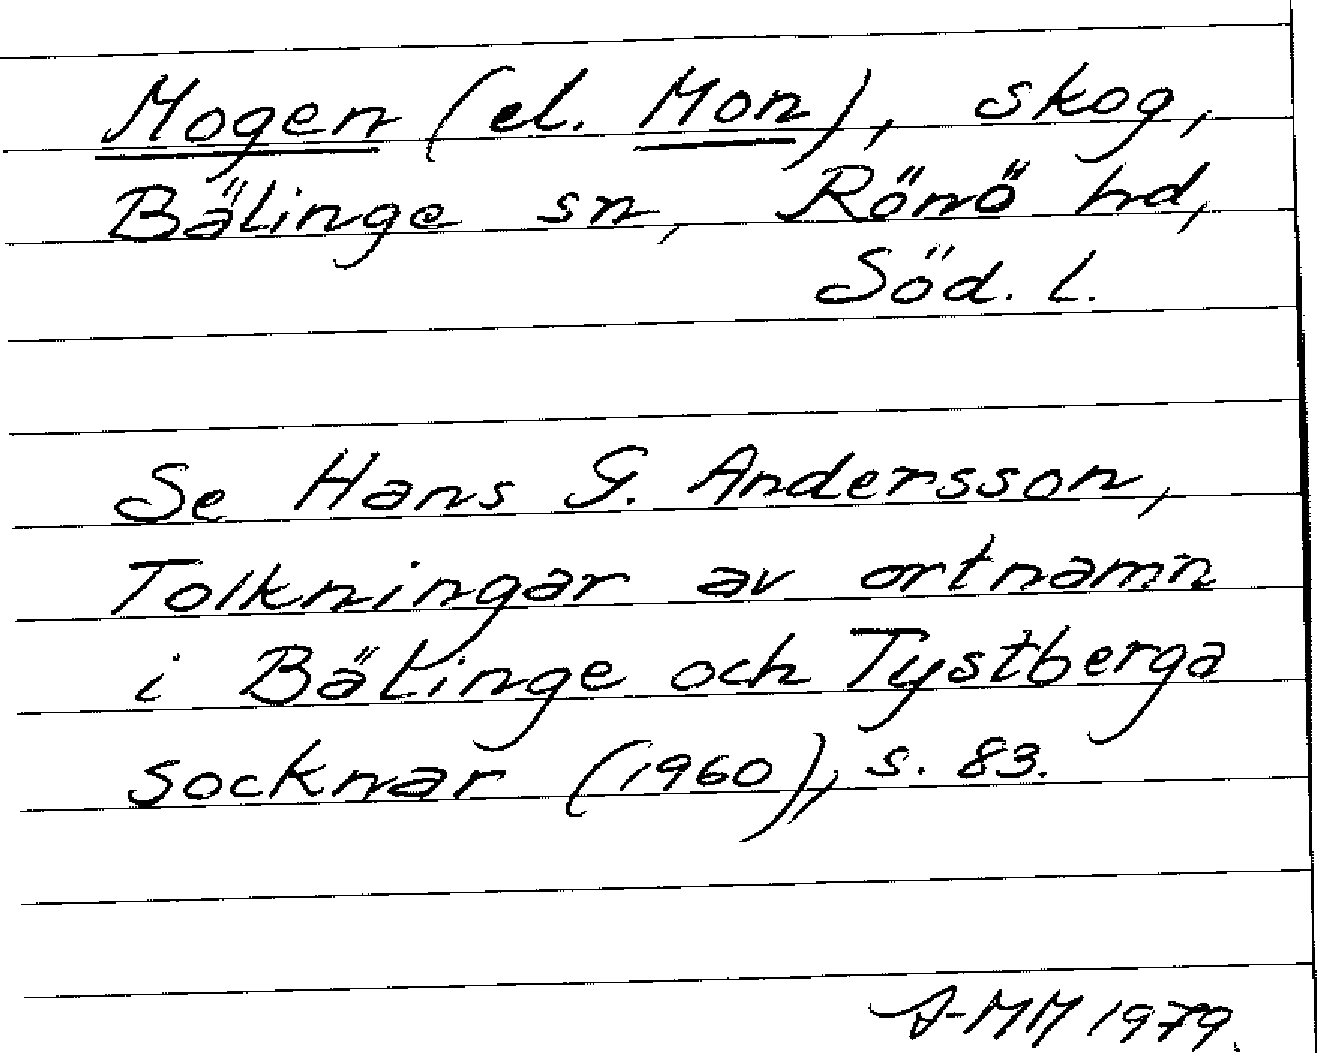 Mogen (el. Mon), skog,
Bälinge sn, Rönö hd,
Söd. l.
Se Hans G. Andersson,
Tolkningar av ortnamn
i Bälinge och Tystberga
socknar (1960), s. 83.
A-MM 1979.